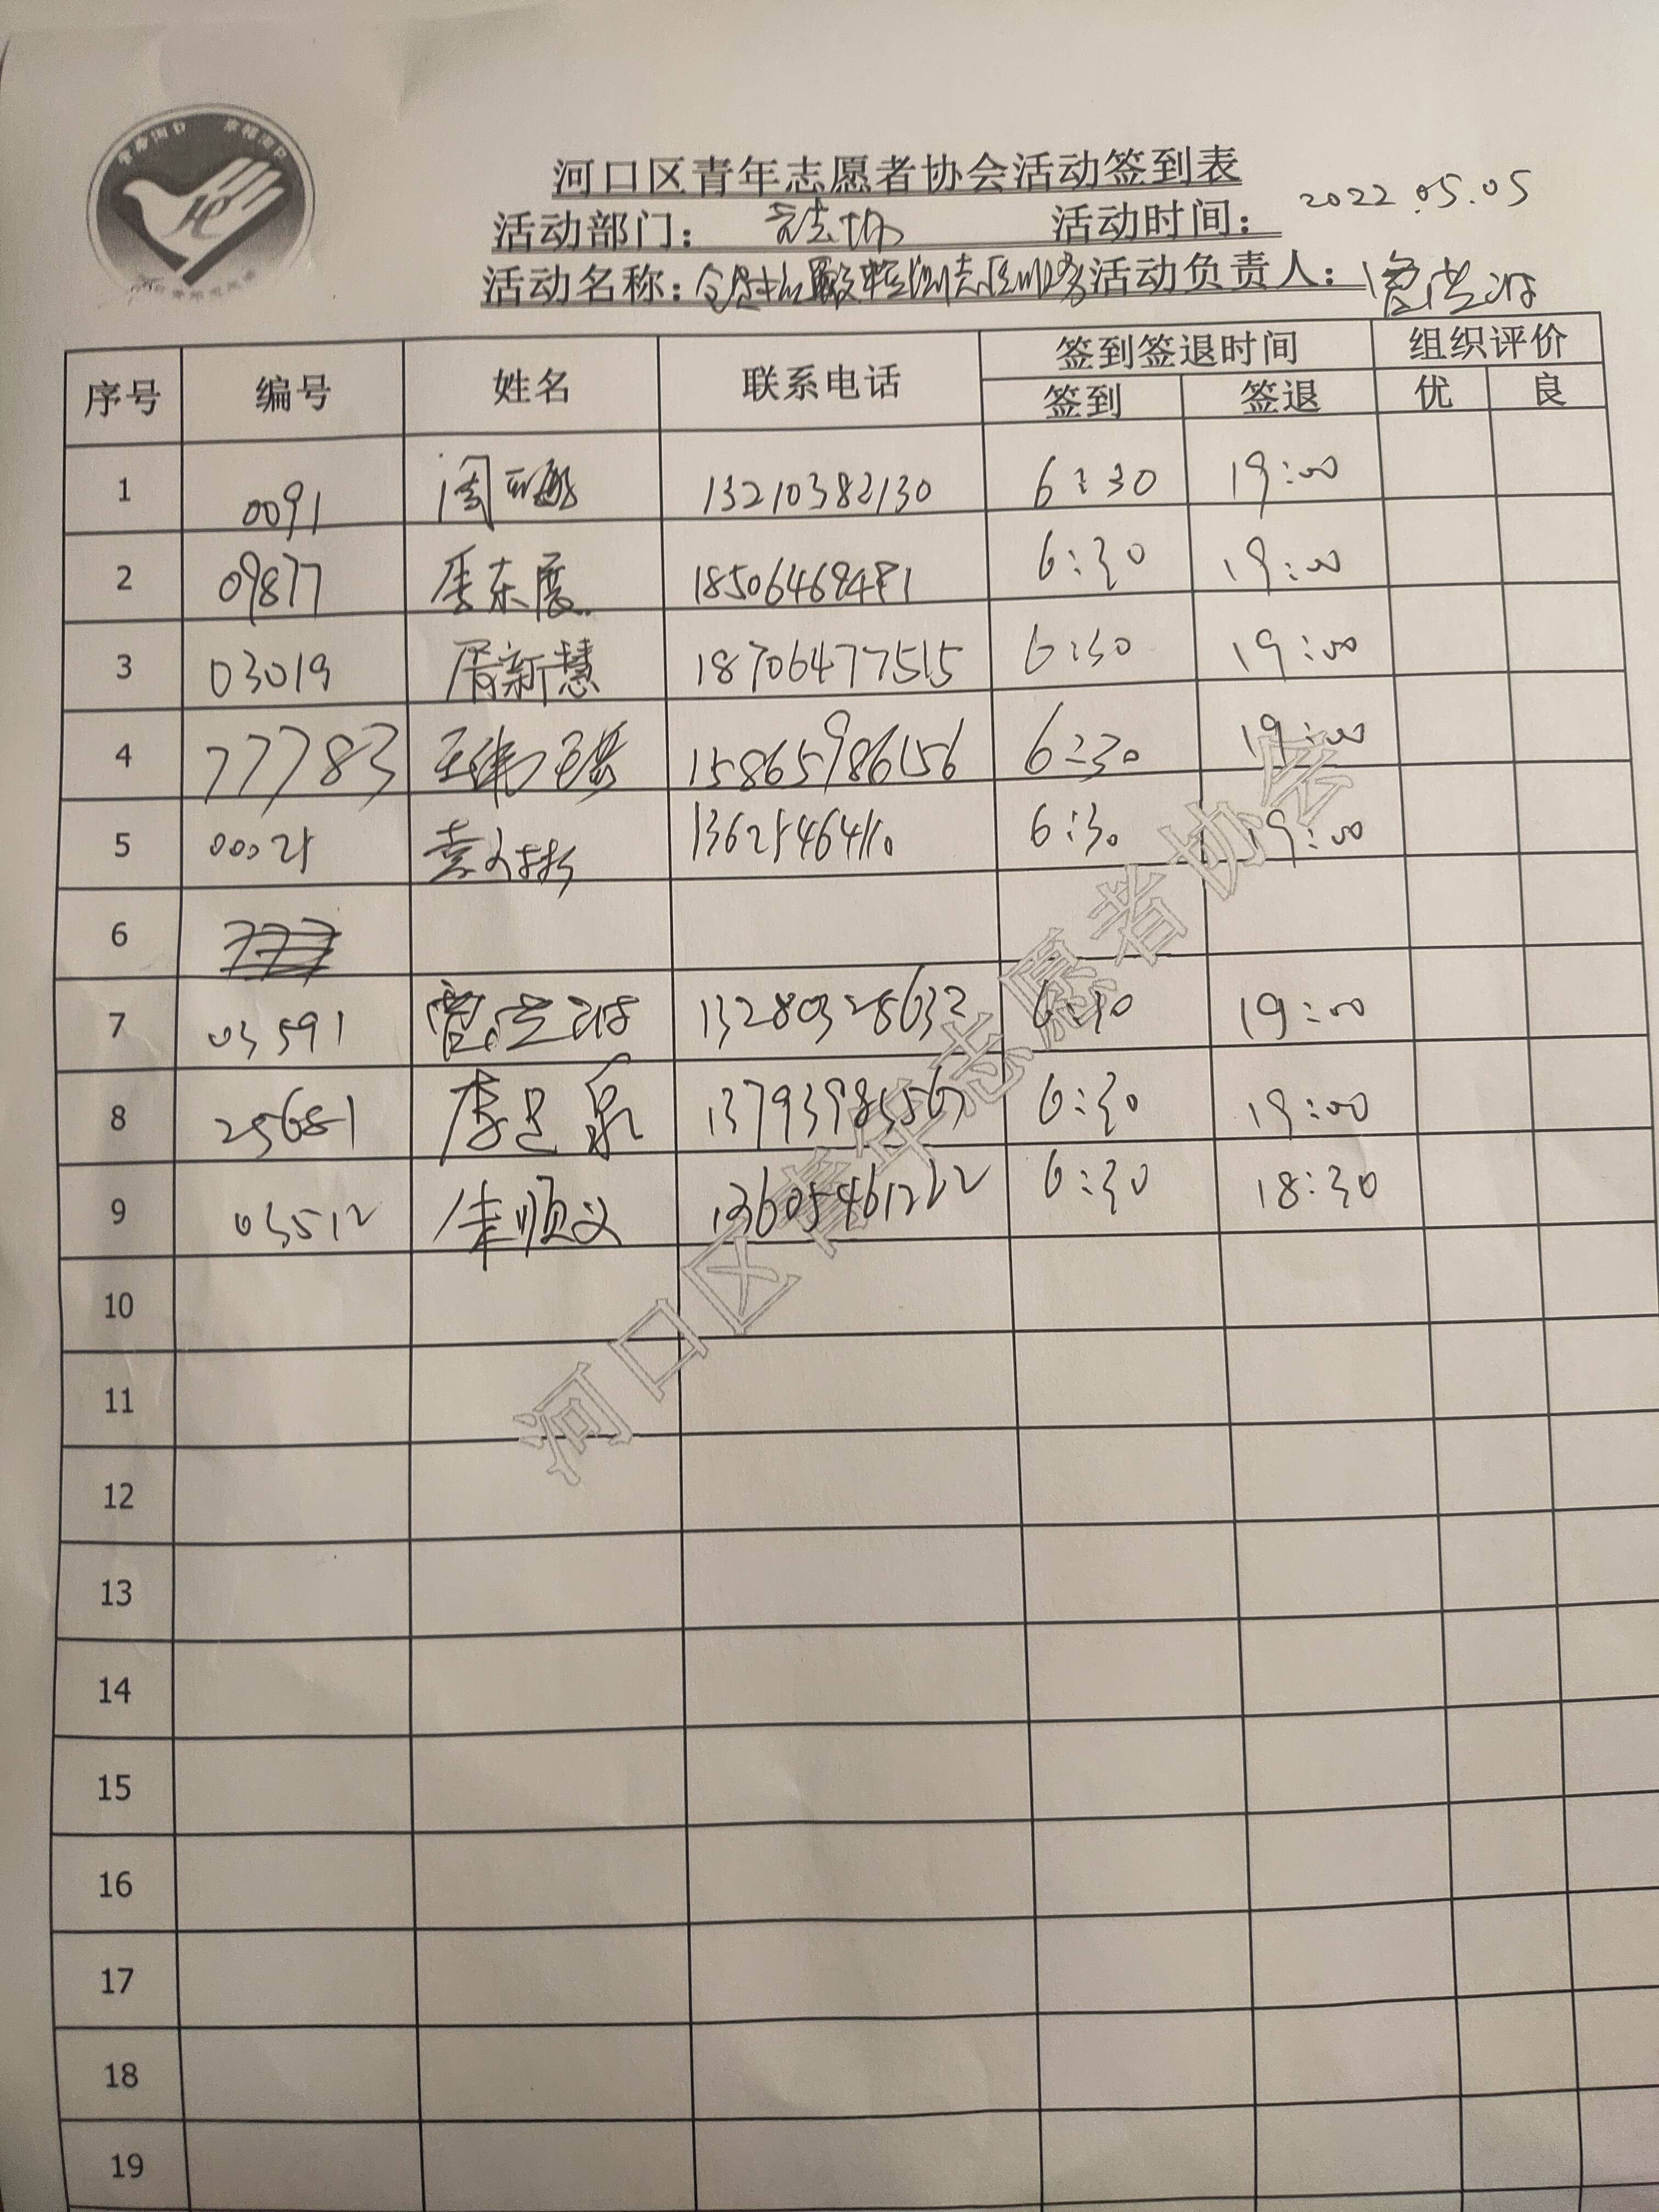 河口区青年志愿者协会活动签到表
活动部门： 活动时间： 2022.05.05
活动名称： 活动负责人：
序号 编号 姓名 联系电话 签到签退时间 组织评价
签到 签退 优 良
1 0091 13210382130 6:30 19:00
2 09877 季东展 6:30 19:00
3 03019 屠新慧 18706477515 6:30 19:00
4 77783 15865986156 6:30 19:00
5 00025 6:30 19:00
6
7 03591 13280328632 6:30 19:00
8 25681 6:30 19:00
9 03512 朱顺义 13605461222 6:30 18:30
10
11
12
13
14
15
16
17
18
19
河口区青年志愿者协会